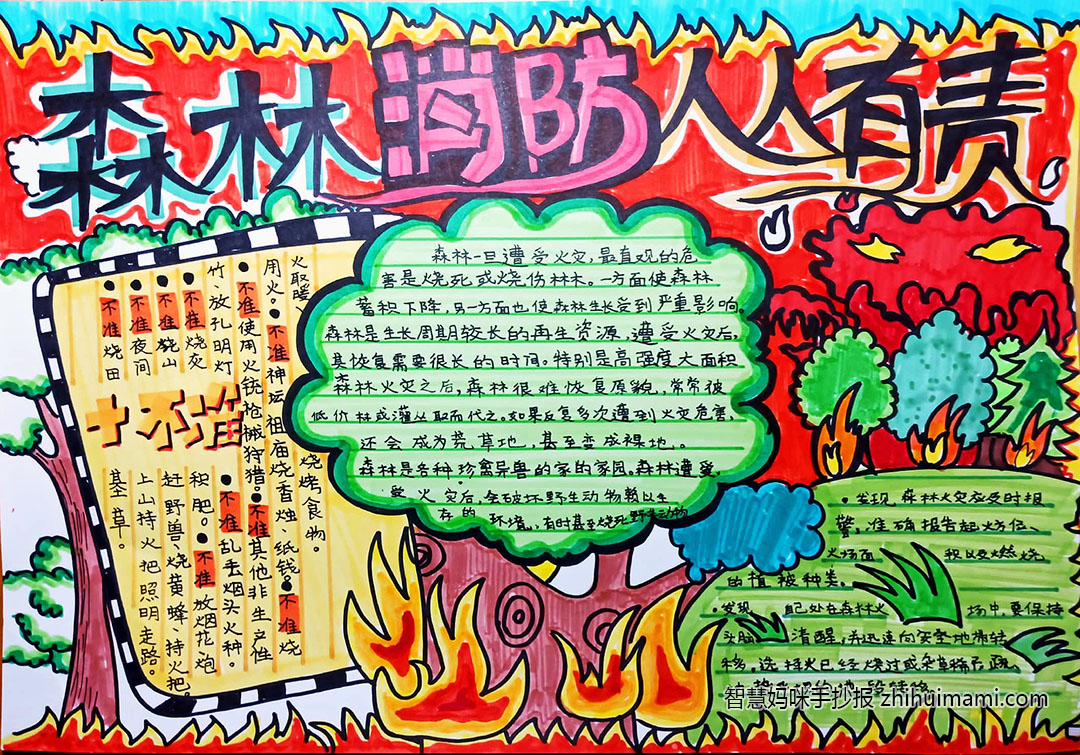 森林消防人人有责
十不准
●不准烧田基草。
●不准夜间上山持火把照明走路。
●不准烧山赶野兽、烧黄蜂、持火把
●不准烧灰积肥。●不准放烟花、炮
竹、放孔明灯●不准乱丢烟头火种。
●不准使用火铳枪械狩猎。●不准其他非生产性
用火。●不准神坛祖庙烧香烛、纸钱。●不准烧
火取暖、烧烤食物。
森林一旦遭受火灾，最直观的危
害是烧死或烧伤林木。一方面使森林
蓄积下降，另一方面也使森林生长受到严重影响。
森林是生长周期较长的再生资源，遭受火灾后，
其恢复需要很长的时间。特别是高强度大面积
森林火灾之后，森林很难恢复原貌，常常被
低价林或灌丛取而代之。如果反复多次遭到火灾危害，
还会成为荒草地，甚至变成裸地。
森林是各种珍禽异兽的家的家园。森林遭受
受火灾后，会破坏野生动物赖以生
存的环境，有时甚至烧死野生动物
·发现森林火灾应及时报
警，准确报告起火方位、
火场面积以及燃烧
的植被种类。
·发现自己处在森林火场中，要保持
头脑清醒，并迅速向安全地带转
移。选择火已经烧过或杂草稀疏、
智慧妈咪手抄报 zhihuimami.com